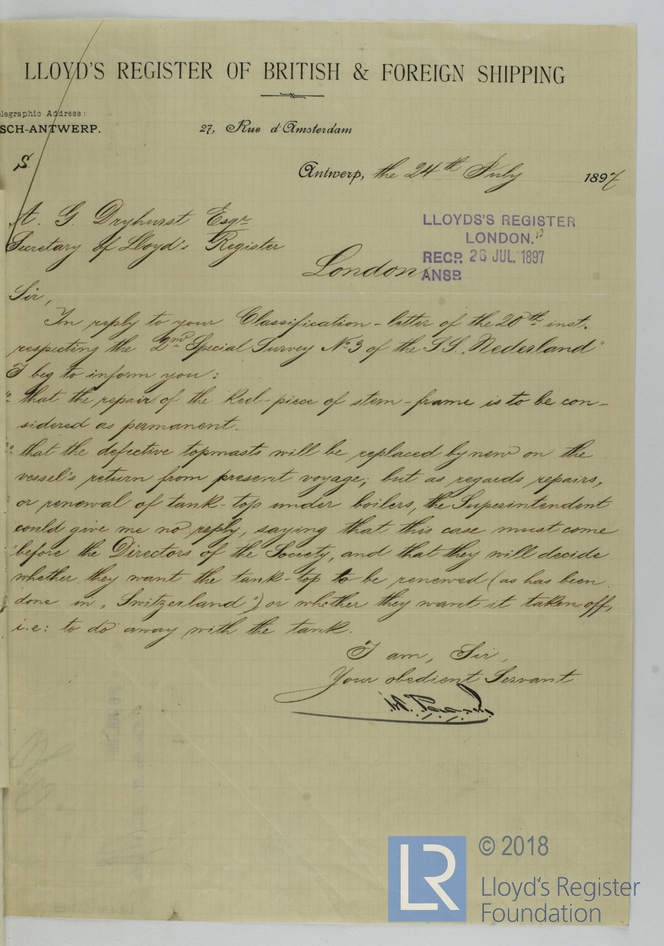 LLOYD'S REGISTER OF BRITISH & FOREIGN SHIPPING
legraphic Address:
SCH-ANTWERP.
27, Rue d'Amsterdam
S.
Antwerp, the 24th July 1897
A. G. Dryhurst Esqr
Secretary of Lloyd's Register
London
LLOYDS'S REGISTER
LONDON.
RECP. 26 JUL. 1897
ANSD
Sir,
In reply to your Classification-letter of the 20th inst.
respecting the 2nd Special Survey No. 3 of the S.S. Nederland"
I beg to inform you:
that the repair of the keel-piece of stem-frame is to be con-
sidered as permanent.
that the defective topmasts will be replaced by new on the
vessel's return from present voyage; but as regards repairs,
or renewal of tank-top under boilers, the Superintendent
could give me no reply, saying that this case must come
before the Directors of the Society, and that they will decide
whether they want the tank-top to be renewed (as has been
done on "Switzerland") or whether they want it taken off,
i.e: to do away with the tank.
I am, Sir,
Your obedient Servant
LR
© 2018
Lloyd's Register
Foundation